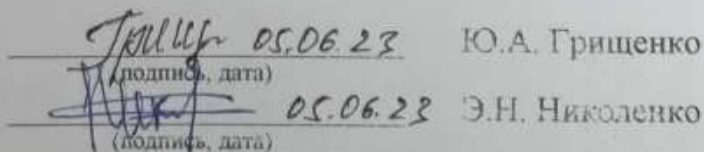 05.06.23 Ю.А. Грищенко
(подпись, дата)
05.06.23 Э.Н. Николенко
(подпись, дата)